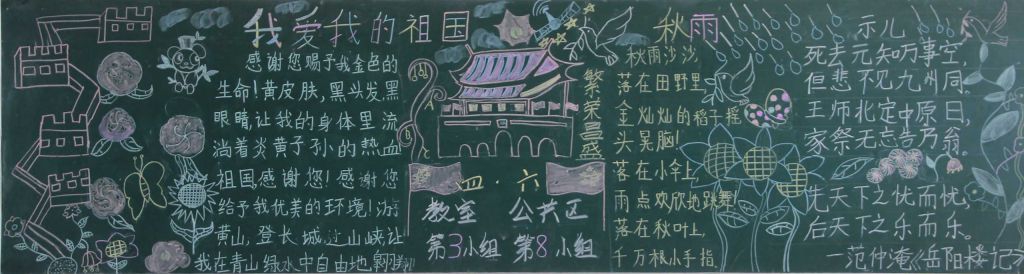 我爱我的祖国
感谢您赐予我金色的
生命！黄皮肤，黑头发黑
眼睛，让我的身体里流
淌着炎黄子孙的热血
祖国，感谢您！感谢您
给予我优美的环境！游
黄山，登长城，过山峡让
我在青山绿水中自由地翱翔
繁荣昌盛
四·六
教室 公共区
第3小组 第8小组
秋雨
秋雨沙沙
落在田野里
金灿灿的稻子摇
头晃脑！
落在小伞上
雨点欢欣地跳舞
落在秋叶上，
千万根小手指
示儿
死去元知万事空，
但悲不见九州同。
王师北定中原日，
家祭无忘告乃翁。
先天下之忧而忧，
后天下之乐而乐。
—范仲淹《岳阳楼记》